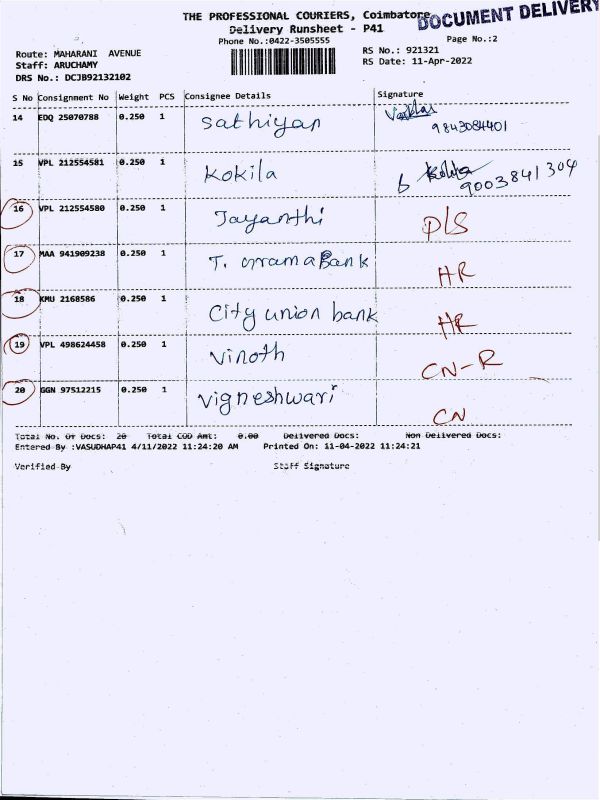 THE PROFESSIONAL COURIERS, Coimbatore
DOCUMENT DELIVERY
Delivery Runsheet - P41
Phone No.:0422-3505555
Page No.:2
Route: MAHARANI AVENUE
RS No.: 921321
Staff: ARUCHAMY
RS Date: 11-Apr-2022
DRS No.: DCJB92132102
S No Consignment No Weight PCS Consignee Details Signature
14 EDQ 25070788 0.250 1 Sathiyan
9843084401
15 VPL 212554581 0.250 1 Kokila Kokila
9003841304
16 VPL 212554580 0.250 1 Jayanthi D/S
17 MAA 941909238 0.250 1 T. Bank HR
18 KMU 2168586 0.250 1 City union bank HR
19 VPL 498624458 0.250 1 Vinoth CN-R
20 GGN 97512215 0.250 1 Vigneshwari CN
Total No. Of Docs: 20 Total COD Amt: 0.00 Delivered Docs: Non Delivered Docs:
Entered By :VASUDHAP41 4/11/2022 11:24:20 AM Printed On: 11-04-2022 11:24:21
Verified By Staff Signature